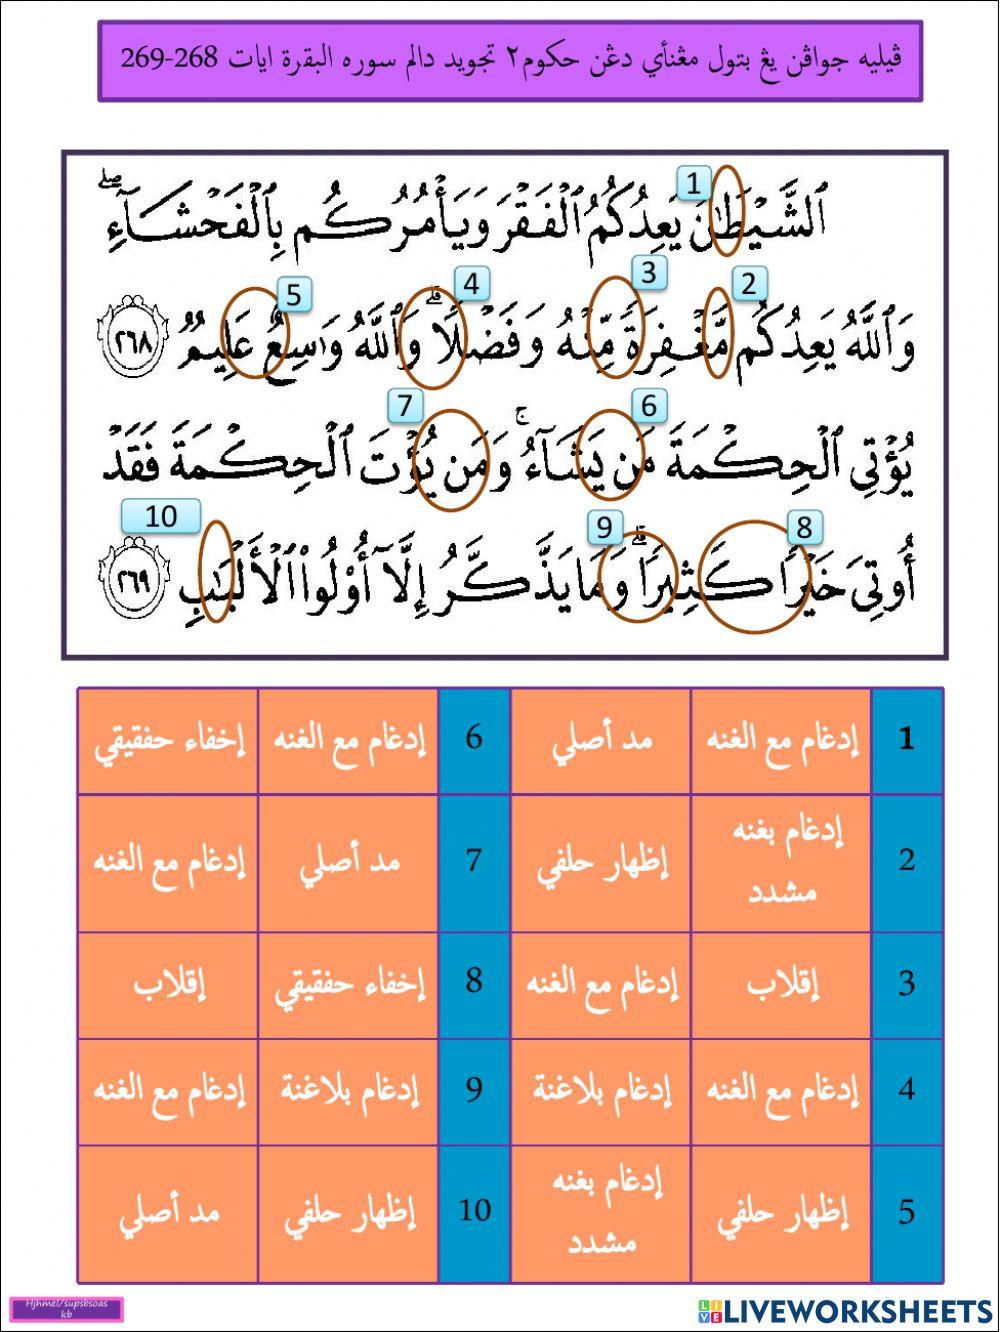 ڤيليه جواڤن يڠ بتول مڠنأي دڠن حکوم٢ تجويد دالم سوره البقرة ايات 268-269
1
ٱلشَّيْطَٰنُ يَعِدُكُمُ ٱلْفَقْرَ وَيَأْمُرُكُم بِٱلْفَحْشَآءِ ۖ
2
3
4
5
وَٱللَّهُ يَعِدُكُم مَّغْفِرَةً مِّنْهُ وَفَضْلًا ۗ وَٱللَّهُ وَٰسِعٌ عَلِيمٌ ٢٦٨
6
7
يُؤْتِى ٱلْحِكْمَةَ مَن يَشَآءُ ۚ وَمَن يُؤْتَ ٱلْحِكْمَةَ فَقَدْ
8
9
10
أُوتِىَ خَيْرًا كَثِيرًا ۗ وَمَا يَذَّكَّرُ إِلَّآ أُو۟لُوا۟ ٱلْأَلْبَٰبِ ٢٦٩
1 إدغام مع الغنه مد أصلي 6 إدغام مع الغنه إخفاء حفقيقي
2 إدغام بغنه مشدد إظهار حلفي 7 مد أصلي إدغام مع الغنه
3 إقلاب إدغام مع الغنه 8 إخفاء حفقيقي إقلاب
4 إدغام مع الغنه إدغام بلاغنة 9 إدغام بلاغنة إدغام مع الغنه
5 إظهار حلفي إدغام بغنه مشدد 10 إظهار حلفي مد أصلي
Hjhmel/supsbsoas
kb
LIVEWORKSHEETS